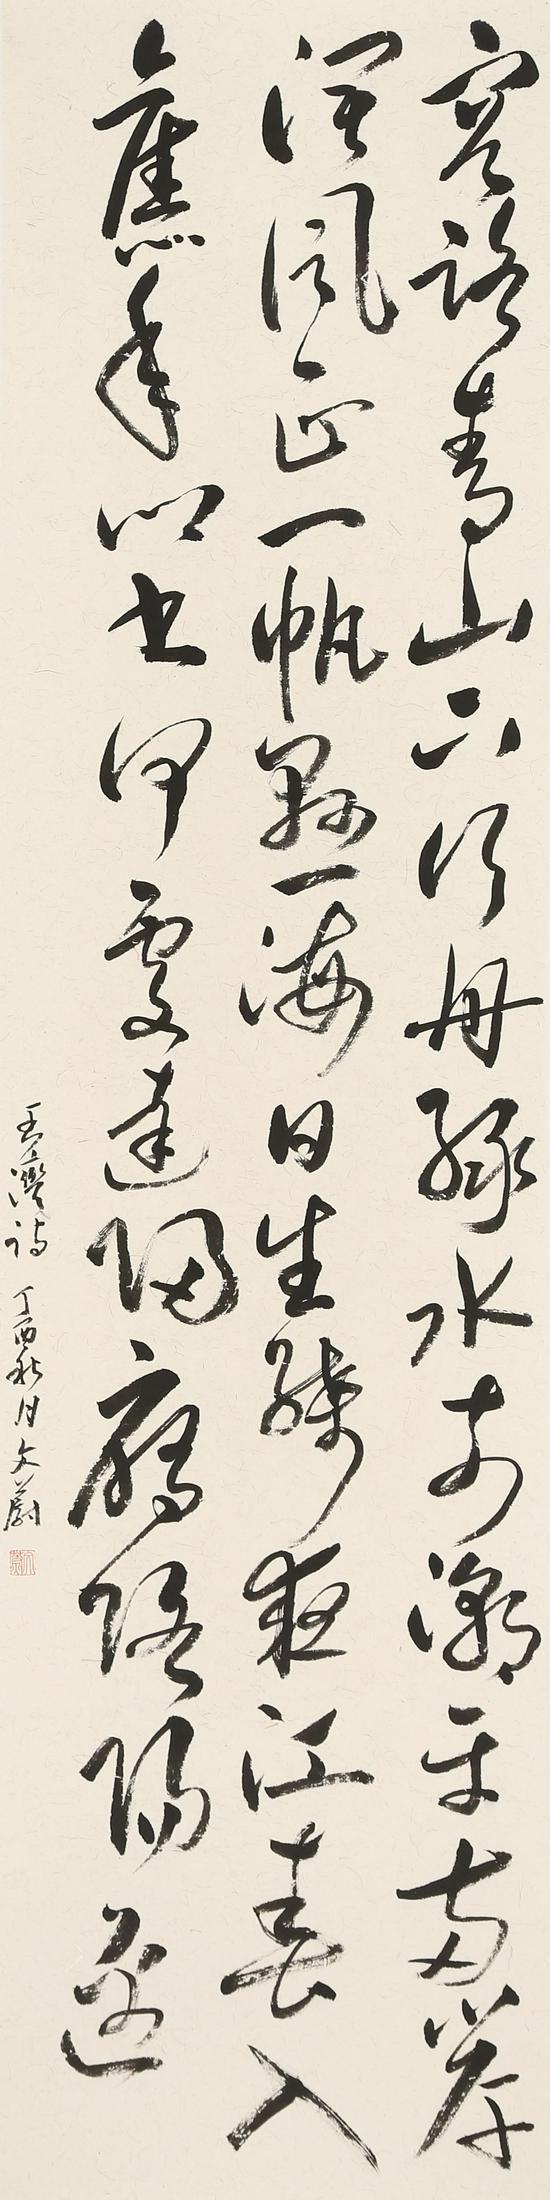 客路青山下行舟綠水前潮平兩岸
濶風正一帆懸海日生殘夜江春入
舊年鄉書何處達歸雁洛陽邊
王灣詩 丁酉秋月文蔚